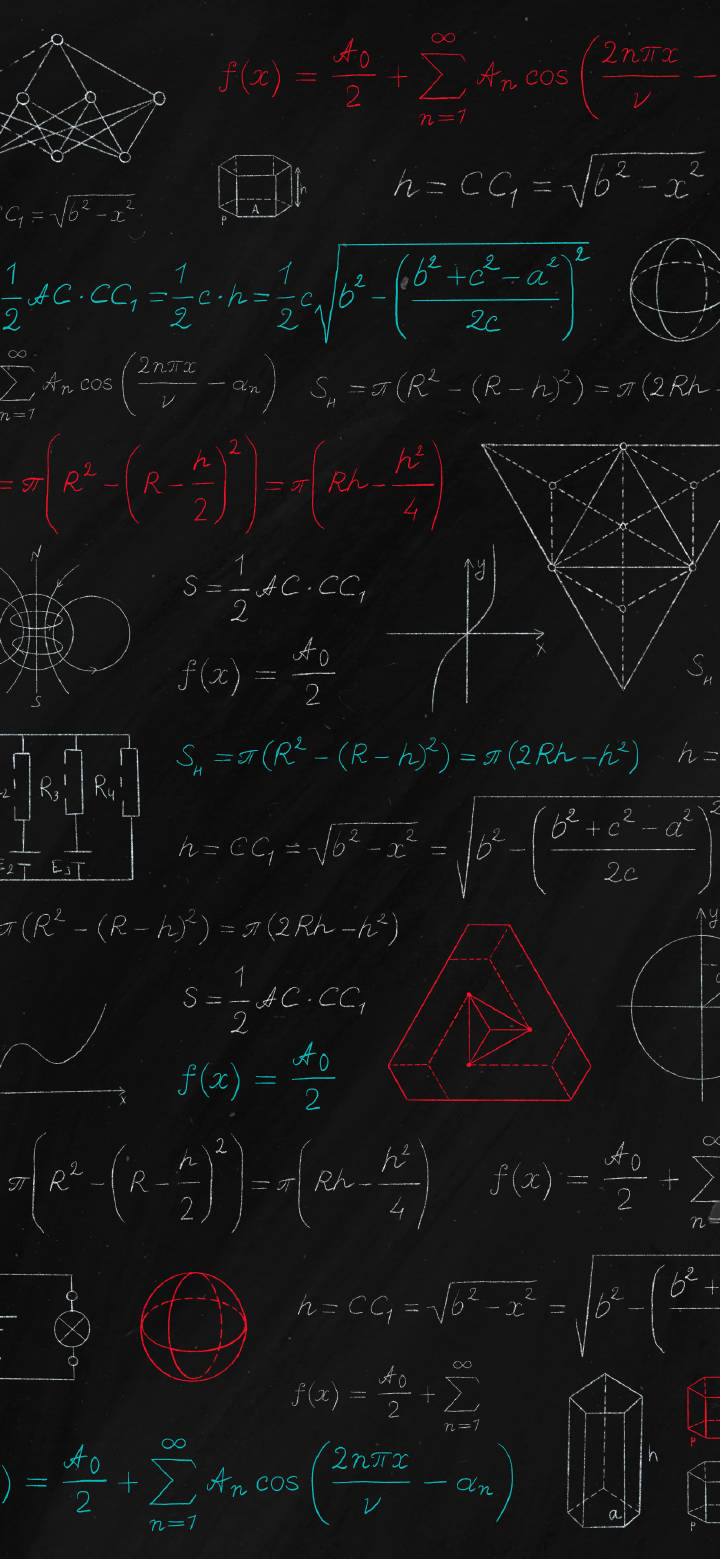 f(x) = A₀/2 + ∞∑n=1 Aₙ cos (2nπx/ν −
h = CC₁ = √(b² − x²)
C₁ = √(b² − x²)
h
A
P
1/2 AC · CC₁ = 1/2 c · h = 1/2 c √(b² − ((b² + c² − a²)/2c)²)
∞∑n=1 Aₙ cos (2nπx/ν − αₙ)
Sₕ = π(R² − (R − h)²) = π(2Rh −
= π(R² − (R − h/2)²) = π(Rh − h²/4)
N
S
S = 1/2 AC · CC₁
y
x
f(x) = A₀/2
Sₕ
Sₕ = π(R² − (R − h)²) = π(2Rh − h²)
h =
2 R3 R4
E2 E3
h = CC₁ = √(b² − x²) = √(b² − ((b² + c² − a²)/2c)²
π(R² − (R − h)²) = π(2Rh − h²)
y
S = 1/2 AC · CC₁
x
f(x) = A₀/2
π(R² − (R − h/2)²) = π(Rh − h²/4)
f(x) = A₀/2 + ∞∑n
h = CC₁ = √(b² − x²) = √(b² − (b² +
f(x) = A₀/2 + ∞∑n=1
h
a
P
P
) = A₀/2 + ∞∑n=1 Aₙ cos (2nπx/ν − αₙ)